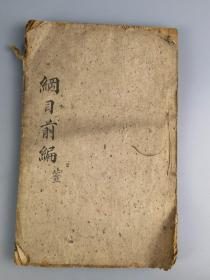 綱目前編